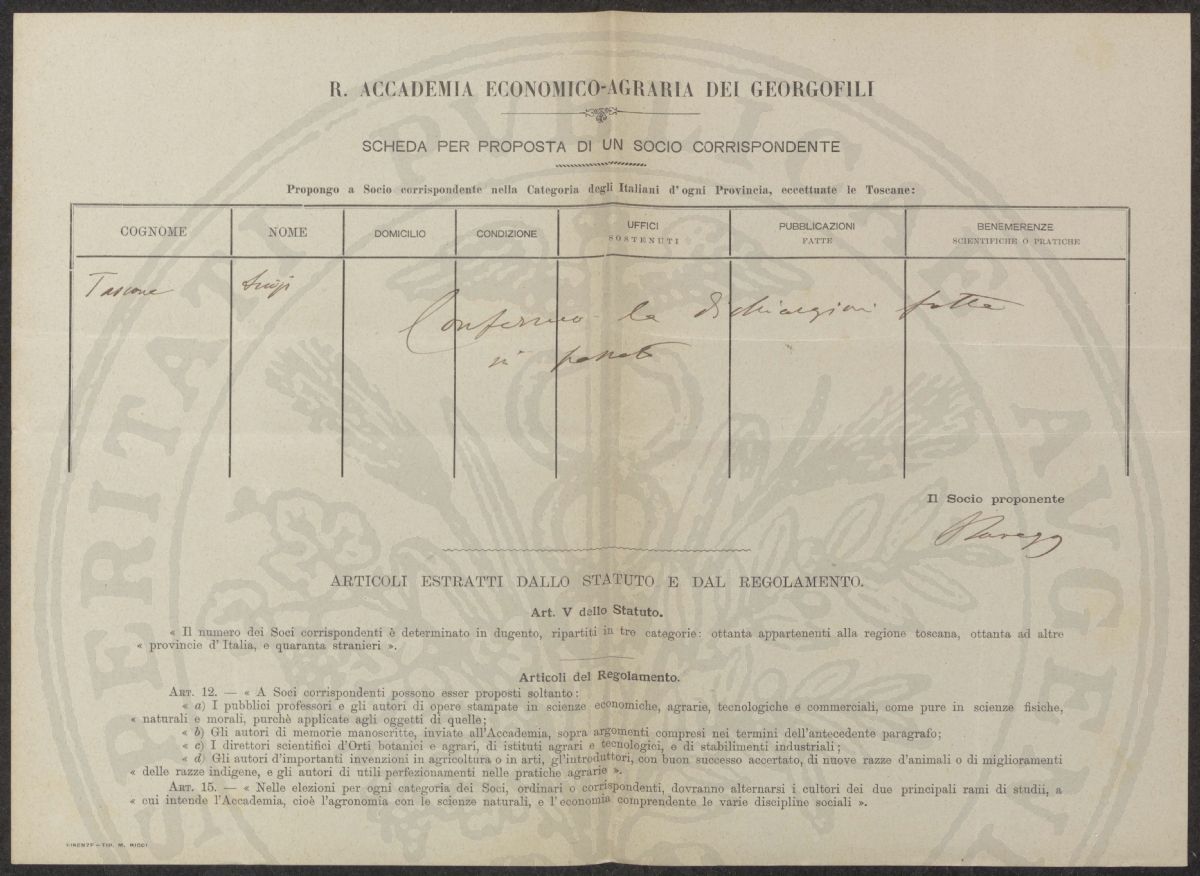 R. ACCADEMIA ECONOMICO-AGRARIA DEI GEORGOFILI
SCHEDA PER PROPOSTA DI UN SOCIO CORRISPONDENTE
Propongo a Socio corrispondente nella Categoria degli Italiani d'ogni Provincia, eccettuate le Toscane:
COGNOME NOME DOMICILIO CONDIZIONE UFFICI SOSTENUTI PUBBLICAZIONI FATTE BENEMERENZE SCIENTIFICHE O PRATICHE
Tascone Luigi
Confermo la dichiarazioni fatta
in passato
Il Socio proponente
ARTICOLI ESTRATTI DALLO STATUTO E DAL REGOLAMENTO.
Art. V dello Statuto.
« Il numero dei Soci corrispondenti è determinato in dugento, ripartiti in tre categorie: ottanta appartenenti alla regione toscana, ottanta ad altre
« provincie d'Italia, e quaranta stranieri ».
Articoli del Regolamento.
ART. 12. — « A Soci corrispondenti possono esser proposti soltanto:
« a) I pubblici professori e gli autori di opere stampate in scienze economiche, agrarie, tecnologiche e commerciali, come pure in scienze fisiche,
« naturali e morali, purchè applicate agli oggetti di quelle;
« b) Gli autori di memorie manoscritte, inviate all'Accademia, sopra argomenti compresi nei termini dell'antecedente paragrafo;
« c) I direttori scientifici d'Orti botanici e agrari, di istituti agrari e tecnologici, e di stabilimenti industriali;
« d) Gli autori d'importanti invenzioni in agricoltura o in arti, gl'introduttori, con buon successo accertato, di nuove razze d'animali o di miglioramenti
« delle razze indigene, e gli autori di utili perfezionamenti nelle pratiche agrarie ».
ART. 15. — « Nelle elezioni per ogni categoria dei Soci, ordinari o corrispondenti, dovranno alternarsi i cultori dei due principali rami di studii, a
« cui intende l'Accademia, cioè l'agronomia con le scienze naturali, e l'economia comprendente le varie discipline sociali ».
FIRENZE - TIP. M. RICCI
PROSPERITATI PVBLICAE AVGENDAE